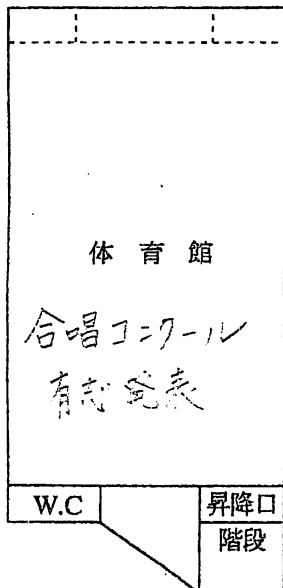 体育館
合唱コンクール
有志発表
W.C
昇降口
階段